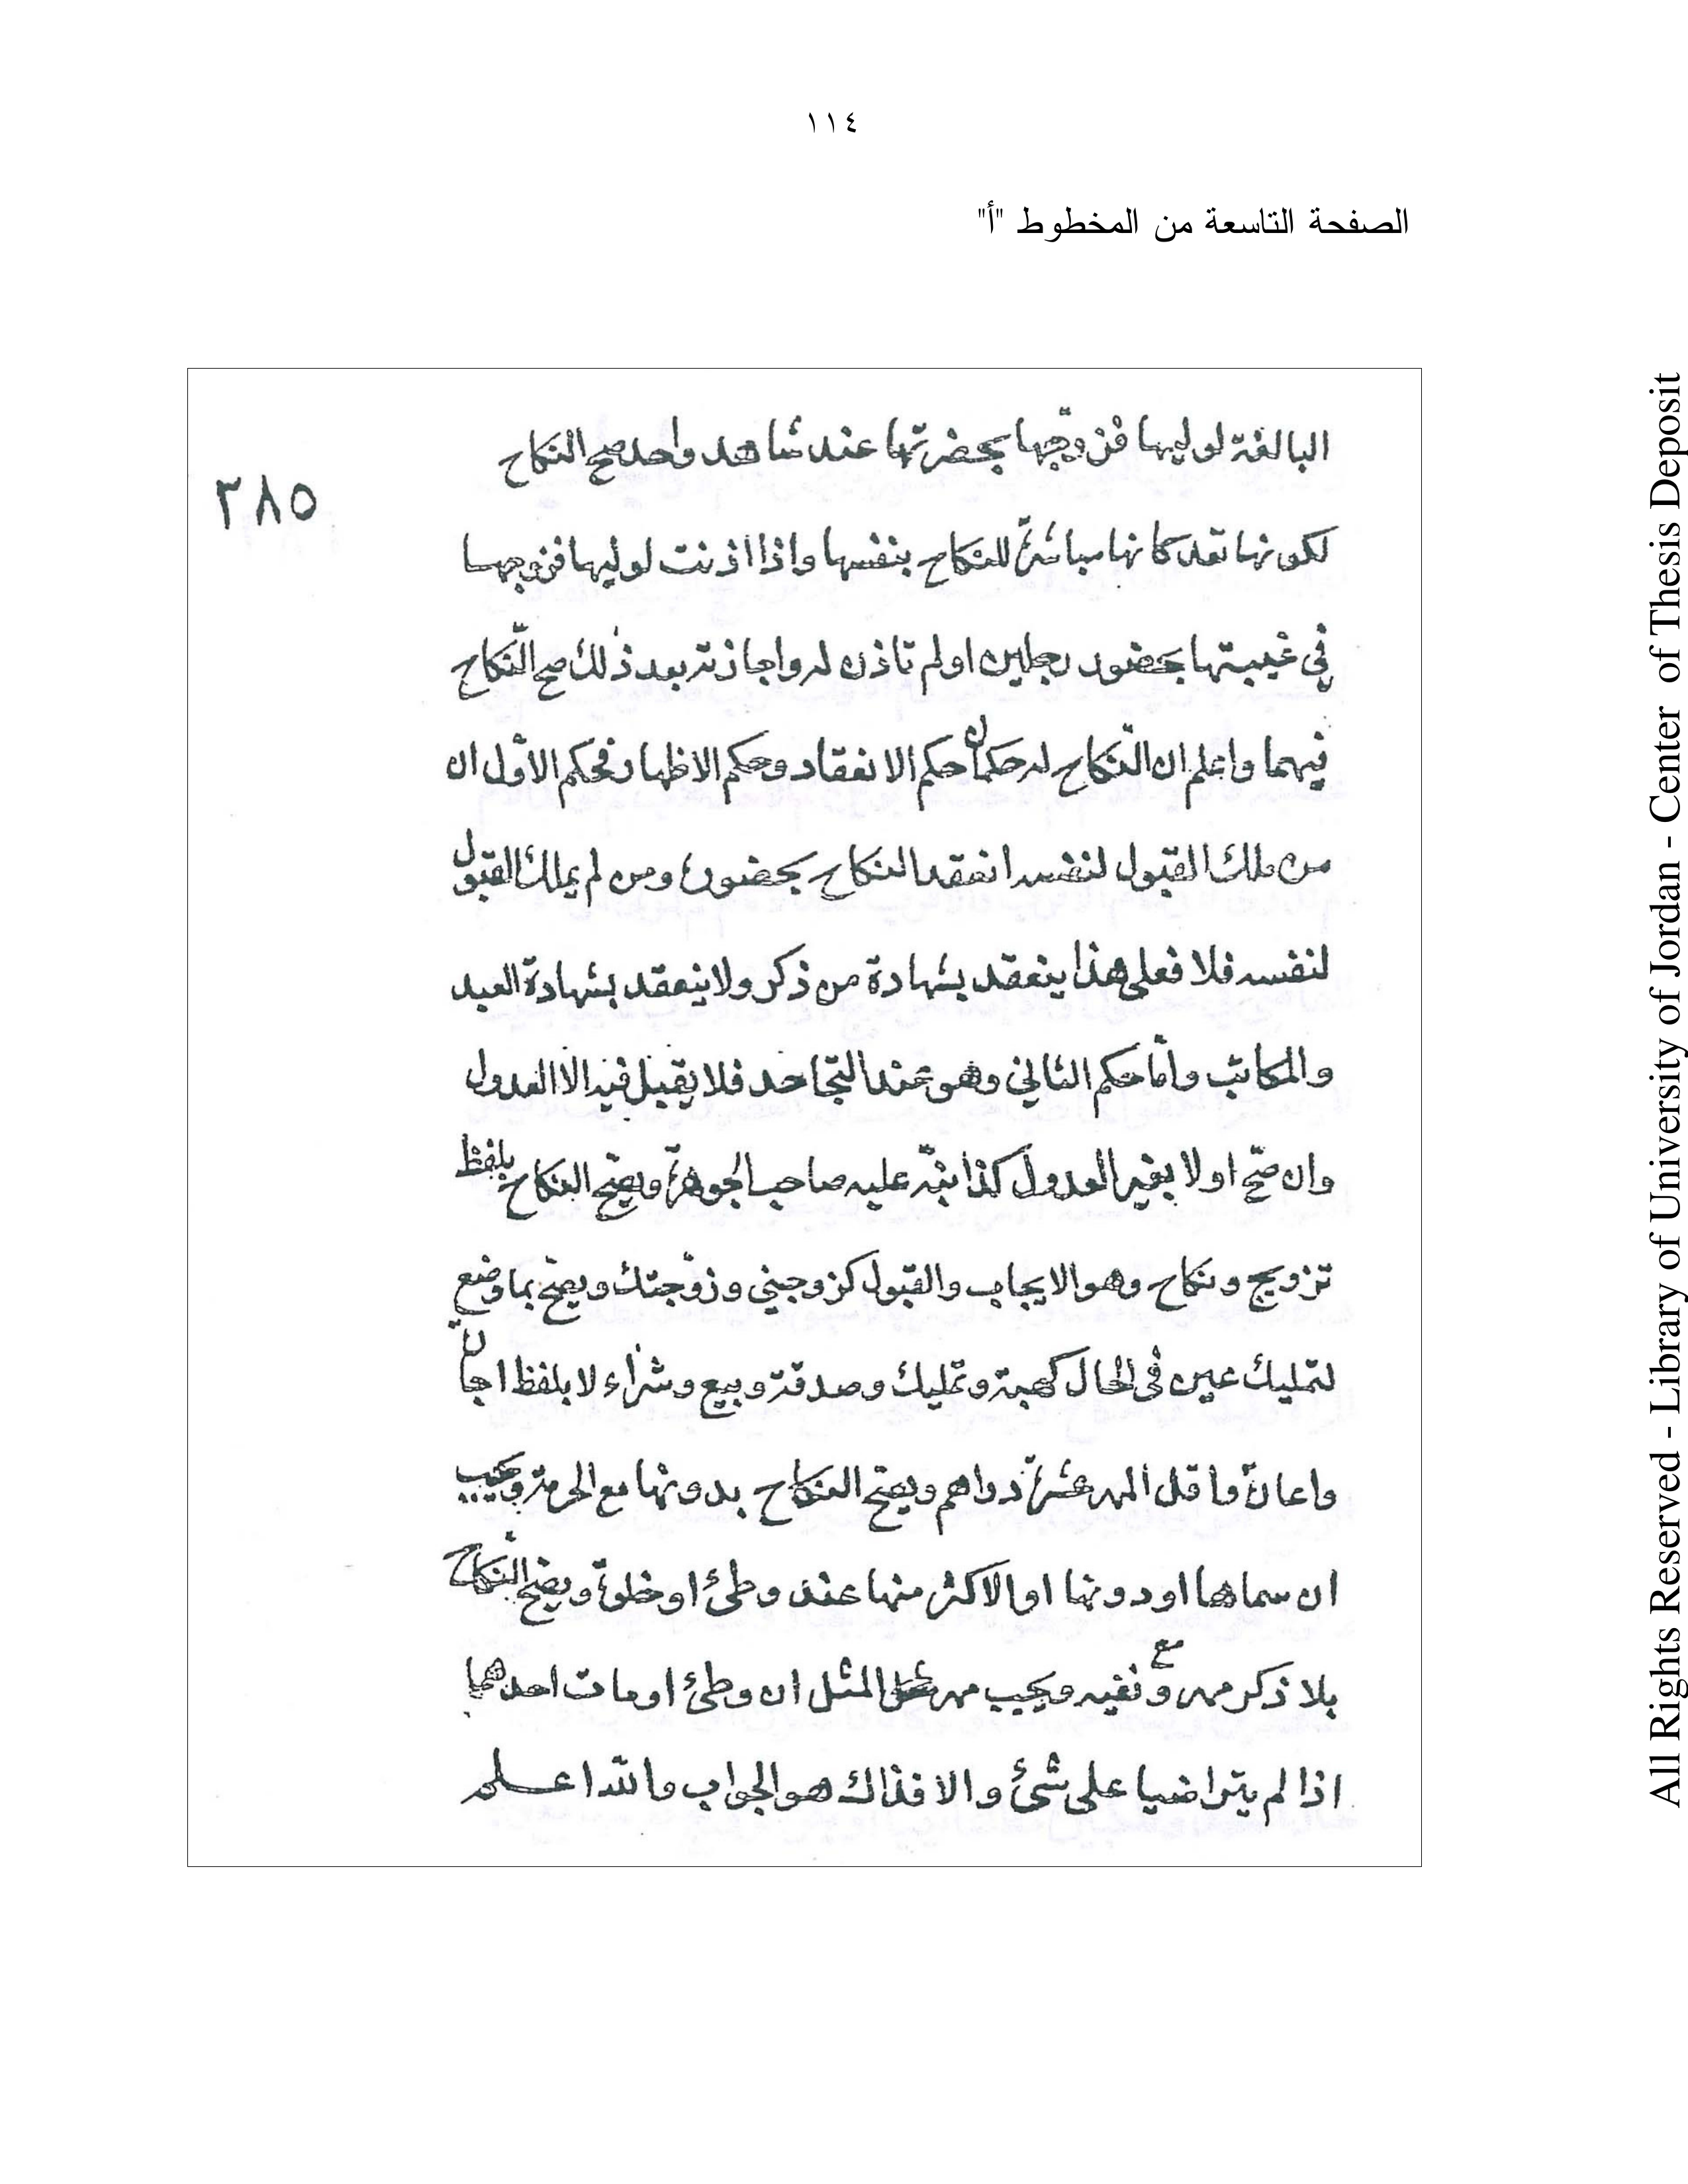 ١١٤
الصفحة التاسعة من المخطوط "أ"
البالغة لوليها فزوّجها بحضرتها عند شاهد واحد صح النكاح
٣٨٥
لكونها تعد كانها مباشرة للنكاح بنفسها واذا اذنت لوليها فزوجها
في غيبتها بحضور رجلين اولم تاذن له واجازته بعد ذلك صح النّكاح
فيهما واعلم ان النّكاح له حكمان حكم الانعقاد وحكم الاظهار فحكم الأول ان
من ملك القبول لنفسه انعقد النكاح بحضوره ومن لم يملك القبول
لنفسه فلا فعلى هذا ينعقد بشهادة من ذكر ولا ينعقد بشهادة العبد
والمكاتب وأما حكم الثاني وهو عند التجاحد فلا يقبل فيه الا العدول
وان صحّ اولا بغير العدول كذا نبّه عليه صاحب الجوهرة ويصحّ النكاح بلفظ
تزويج ونكاح وهو الايجاب والقبول كزوجيني وزوّجتك ويصحّ بما وضع
لتمليك عين في الحال كهبة وتمليك وصدقة وبيع وشراء لا بلفظ اجارة
واعارة وأقل المهر عشرة دراهم ويصح النكاح بدونها مع الحرمة ويجب
ان سماها او دونها او الاكثر منها عند وطئ او خلوة ويصحّ النّكاح
بلا ذكر مهر ومع نفيه ويجب مهر المثل ان وطئ او مات احدهما
اذا لم يتراضيا على شئ والا فذاك هو الجواب والله اعلم
All Rights Reserved - Library of University of Jordan - Center of Thesis Deposit